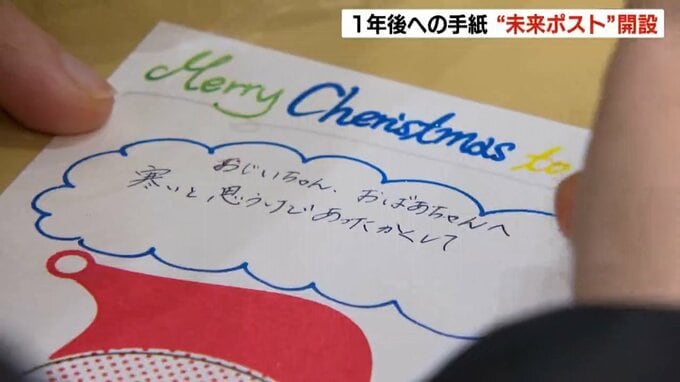 1年後への手紙 “未来ポスト”開設
Merry Cheristmas to
おじいちゃん、おばあちゃんへ
寒いと思うけどあったかくして